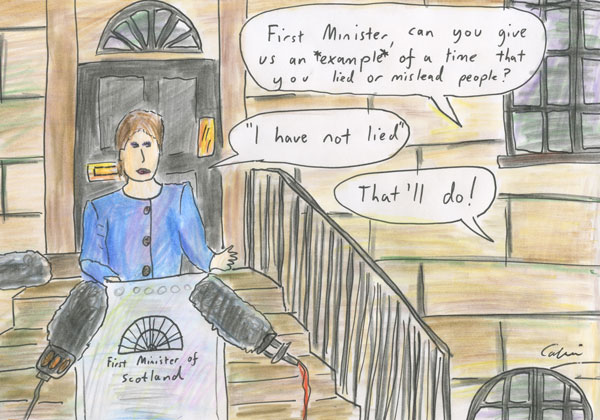 First Minister, can you give
us an *example* of a time that
you lied or mislead people?
"I have not lied"
That'll do!
First Minister of
Scotland